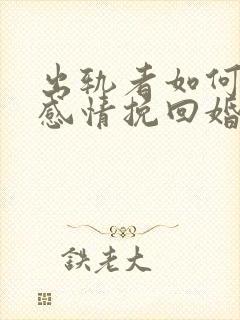 出轨者如何
感情挽回婚
鉄老大